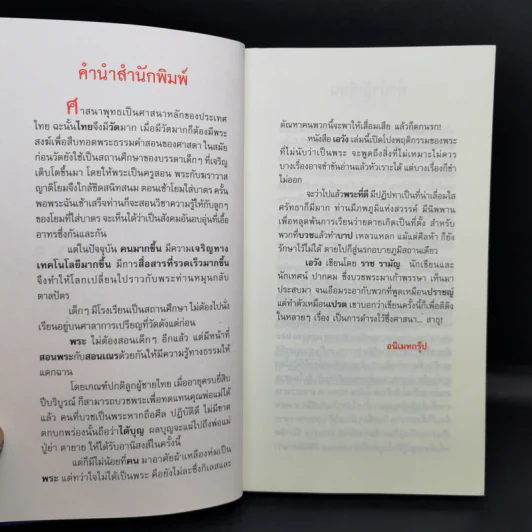 คำนำสำนักพิมพ์
ศาสนาพุทธเป็นศาสนาหลักของประเทศ
ไทย ฉะนั้นไทยจึงมีวัดมาก เมื่อมีวัดมากก็ต้องมีพระ
สงฆ์เพื่อสืบทอดพระธรรมคำสอนของศาสดา ในสมัย
ก่อนวัดยังใช้เป็นสถานศึกษาของบรรดาเด็กๆ ที่เจริญ
เติบโตขึ้นมา โดยให้พระเป็นครูสอน พระกับฆราวาส
ญาติโยมจึงใกล้ชิดสนิทสนม ตอนเช้าโยมใส่บาตร ครั้น
พอพระฉันเช้าเสร็จท่านก็จะสอนวิชาความรู้ให้กับลูกๆ
ของโยมที่ใส่บาตร จะเห็นได้ว่าเป็นสังคมอันอบอุ่นที่เอื้อ
อาทรซึ่งกันและกัน
แต่ในปัจจุบัน คนมากขึ้น มีความเจริญทาง
เทคโนโลยีมากขึ้น มีการสื่อสารที่รวดเร็วมากขึ้น
จึงทำให้โลกเปลี่ยนไปราวกับพระท่านหมุนกลับ
ตาลปัตร
เด็กๆ มีโรงเรียนเป็นสถานศึกษา ไม่ต้องไปนั่ง
เรียนอยู่บนศาลาการเปรียญที่วัดดังแต่ก่อน
พระ ไม่ต้องสอนเด็กๆ อีกแล้ว แต่มีหน้าที่
สอนพระกับสอนเณรด้วยกันให้มีความรู้ทางธรรมให้
แตกฉาน
โดยเกณฑ์ปกติลูกผู้ชายไทย เมื่ออายุครบยี่สิบ
ปีบริบูรณ์ ก็สามารถบวชพระเพื่อทดแทนคุณพ่อแม่ได้
แล้ว คนที่บวชเป็นพระหากถือศีล ปฏิบัติดี ไม่ขาด
ตกบกพร่องนั้นถือว่าได้บุญ ผลบุญจะแผ่ไปถึงพ่อแม่
ปู่ย่า ตายาย ให้ได้รับอานิสงส์ในครั้งนี้
แต่ก็มีไม่น้อยที่คน มาอาศัยผ้าเหลืองห่มเป็น
พระ แต่ทว่าใจไม่ได้เป็นพระ คือยังไม่ละซึ่งกิเลสและ
ตัณหาคนพวกนี้จะพาให้เสื่อมเสีย แล้วก็ตกนรก!
หนังสือ เอวัง เล่มนี้เปิดโปงพฤติกรรมของพระ
ที่ไม่นับว่าเป็นพระ จะพูดถึงสิ่งที่ไม่เหมาะไม่ควร
บางเรื่องอาจขำขันอ่านแล้วหัวเราะได้ แต่บางเรื่องก็ขำ
ไม่ออก
จะว่าไปแล้วพระที่ดี มีปฏิปทาเป็นที่น่าเลื่อมใส
ศรัทธาก็มีมาก ท่านมีภพภูมิแห่งสวรรค์ มีนิพพาน
เพื่อหลุดพ้นการเวียนว่ายตายเกิดเป็นที่ตั้ง สำหรับ
พวกที่บวชแล้วทำบาป เหลวแหลก แม้แต่ศีลห้า ก็ยัง
รักษาไว้ไม่ได้ ตายไปก็สู่นรกอบายภูมิสถานเดียว
เอวัง เขียนโดย ราช รามัญ นักเขียนและ
นักเทศน์ ปากคม ซึ่งบวชพระมาเก้าพรรษา เห็นมา
ประสบมา จนเอือมระอากับพวกที่พูดเหมือนปราชญ์
แต่ทำตัวเหมือนเปรต เขาบอกว่าเขียนครั้งนี้ก็เพื่อติติง
ในหลายๆ เรื่อง เป็นการดำรงไว้ซึ่งศาสนา... สาธุ!
อนิเมทกรุ๊ป